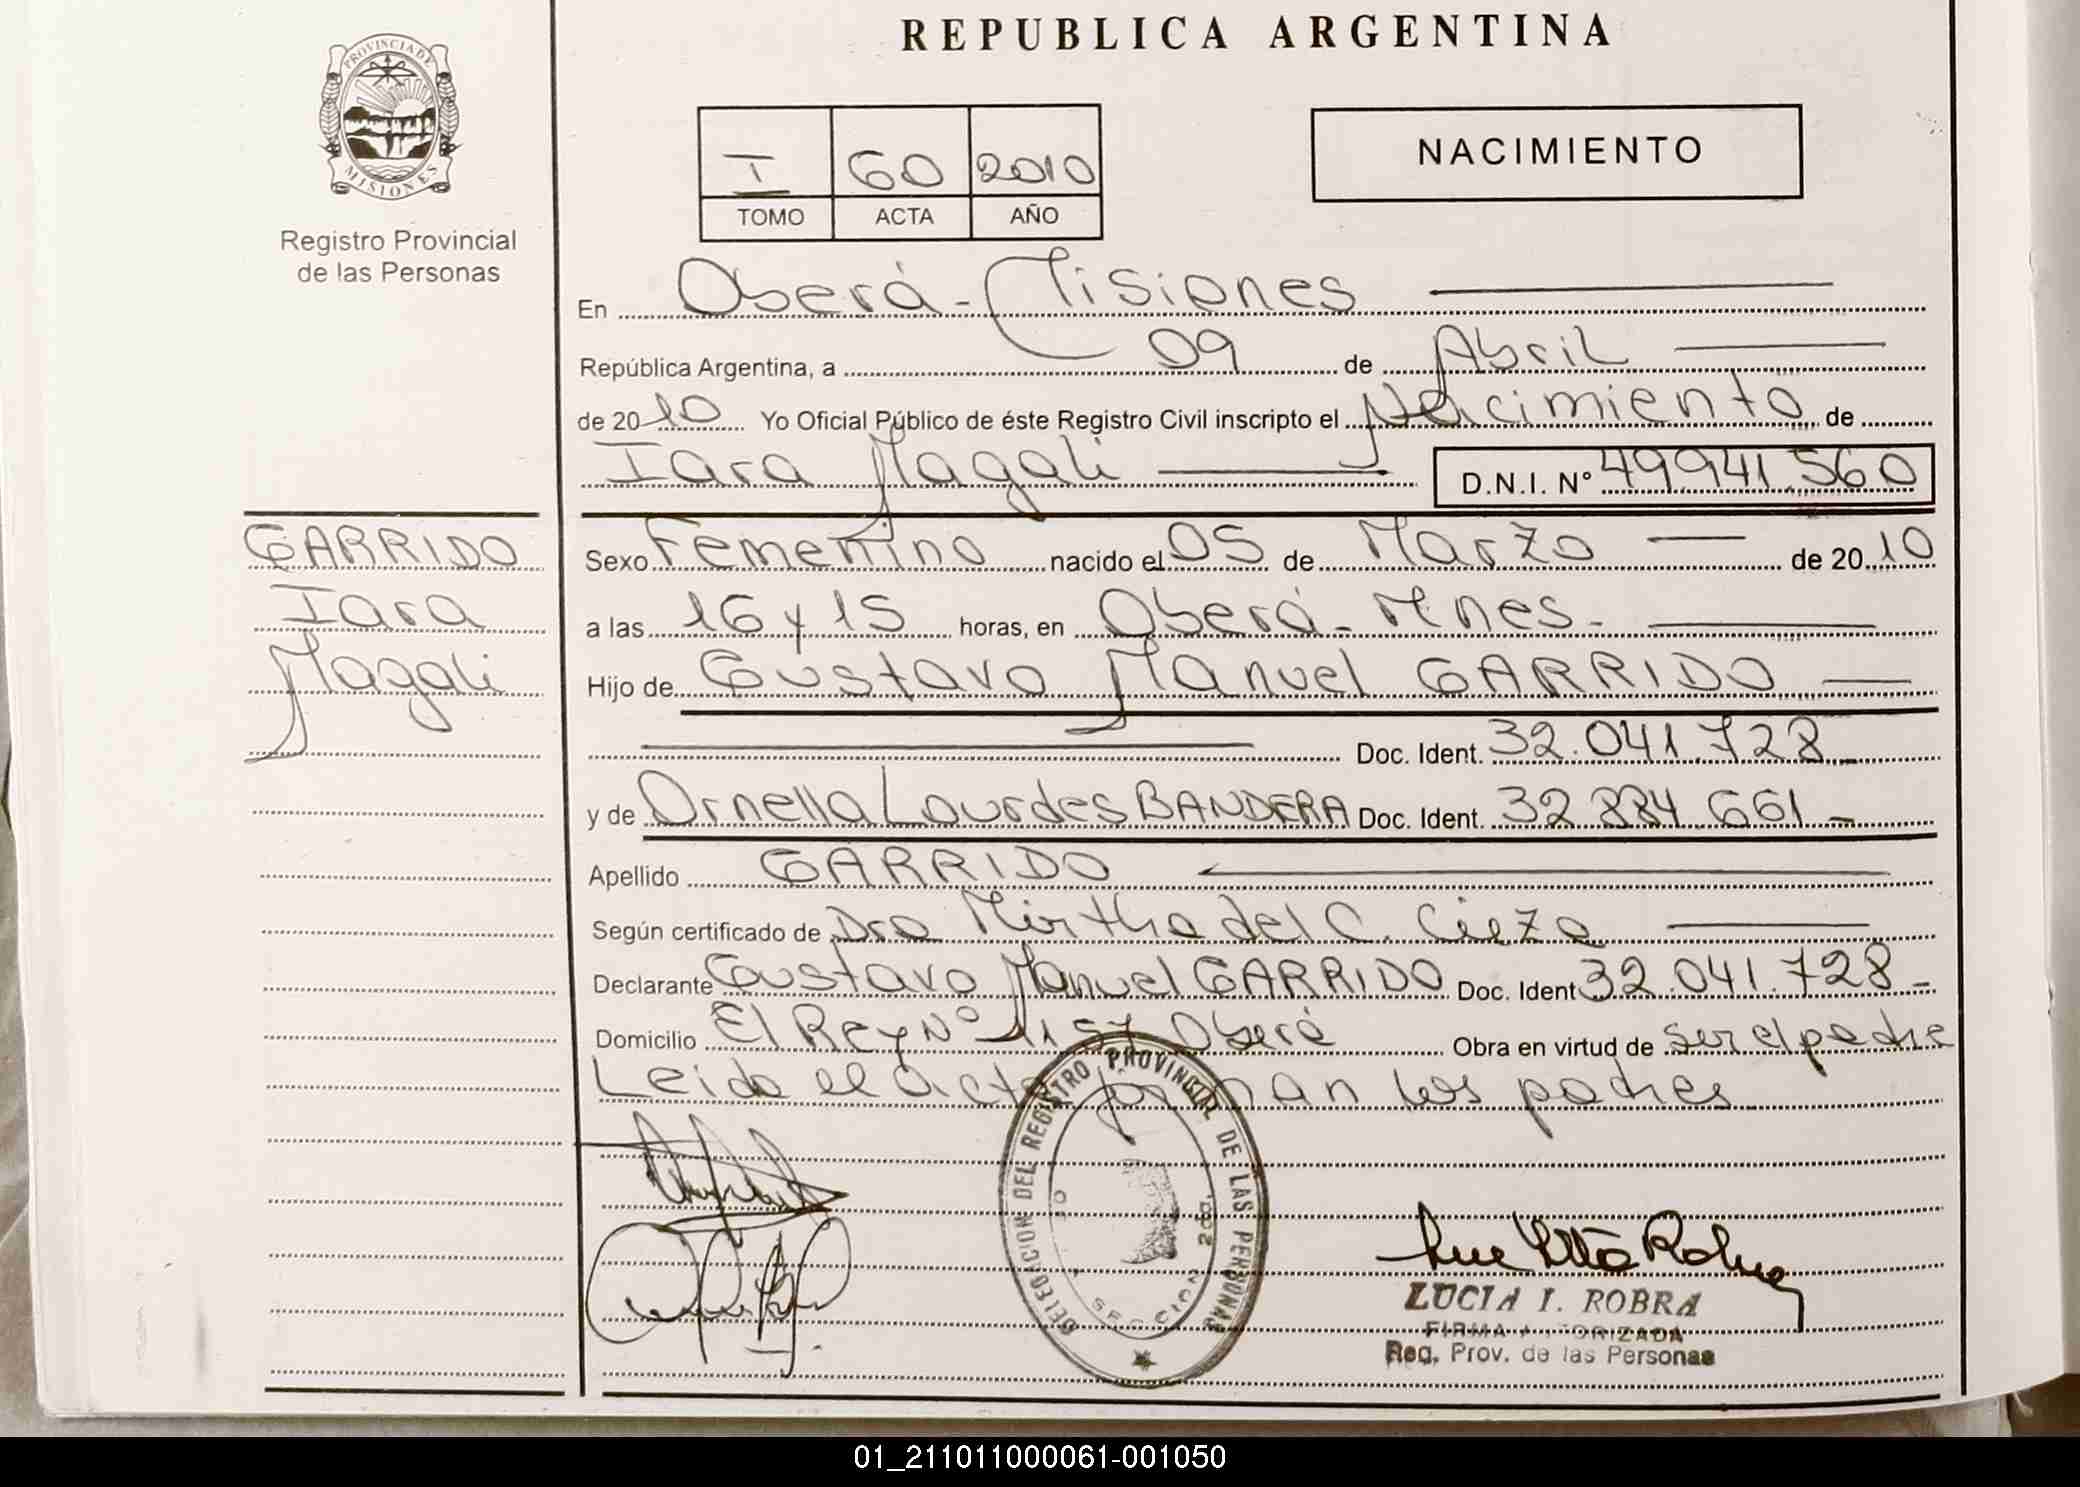 REPUBLICA ARGENTINA
PROVINCIA DE
MISIONES
Registro Provincial
de las Personas
I 60 2010
TOMO ACTA AÑO
NACIMIENTO
En Oberá - Misiones
República Argentina, a 09 de Abril
de 2010 Yo Oficial Público de éste Registro Civil inscripto el Nacimiento de
Iara Magali D.N.I. Nº 49941.560
GARRIDO
Iara
Magali
Sexo Femenino nacido el 05 de Marzo de 2010
a las 16 y 15 horas, en Oberá - Mnes.
Hijo de Gustavo Manuel GARRIDO
Doc. Ident. 32.041.728
y de Ornella Lourdes BANDERA Doc. Ident. 32.884.661
Apellido GARRIDO
Según certificado de Dra Mirtha del C. Cieza
Declarante Gustavo Manuel GARRIDO Doc. Ident 32.041.728
Domicilio El Rey Nº 1157 Oberá Obra en virtud de ser el padre
Leida el acta firman los padres
DELEGACION DEL REGISTRO PROVINCIAL DE LAS PERSONAS
SECCION
LUCIA I. ROBRA
FIRMA AUTORIZADA
Reg. Prov. de las Personas
01_211011000061-001050